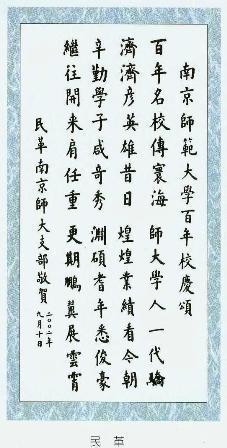 南京師範大學百年校慶頌
百年名校傳寰海 師大學人一代驕
濟濟彥英雄昔日 煌煌業績看今朝
辛勤學子咸奇秀 淵碩耆年悉俊豪
繼往開来肩任重 更期鵬翼展雲霄
民革南京師大支部敬賀
二〇〇二年
九月十日
民 革